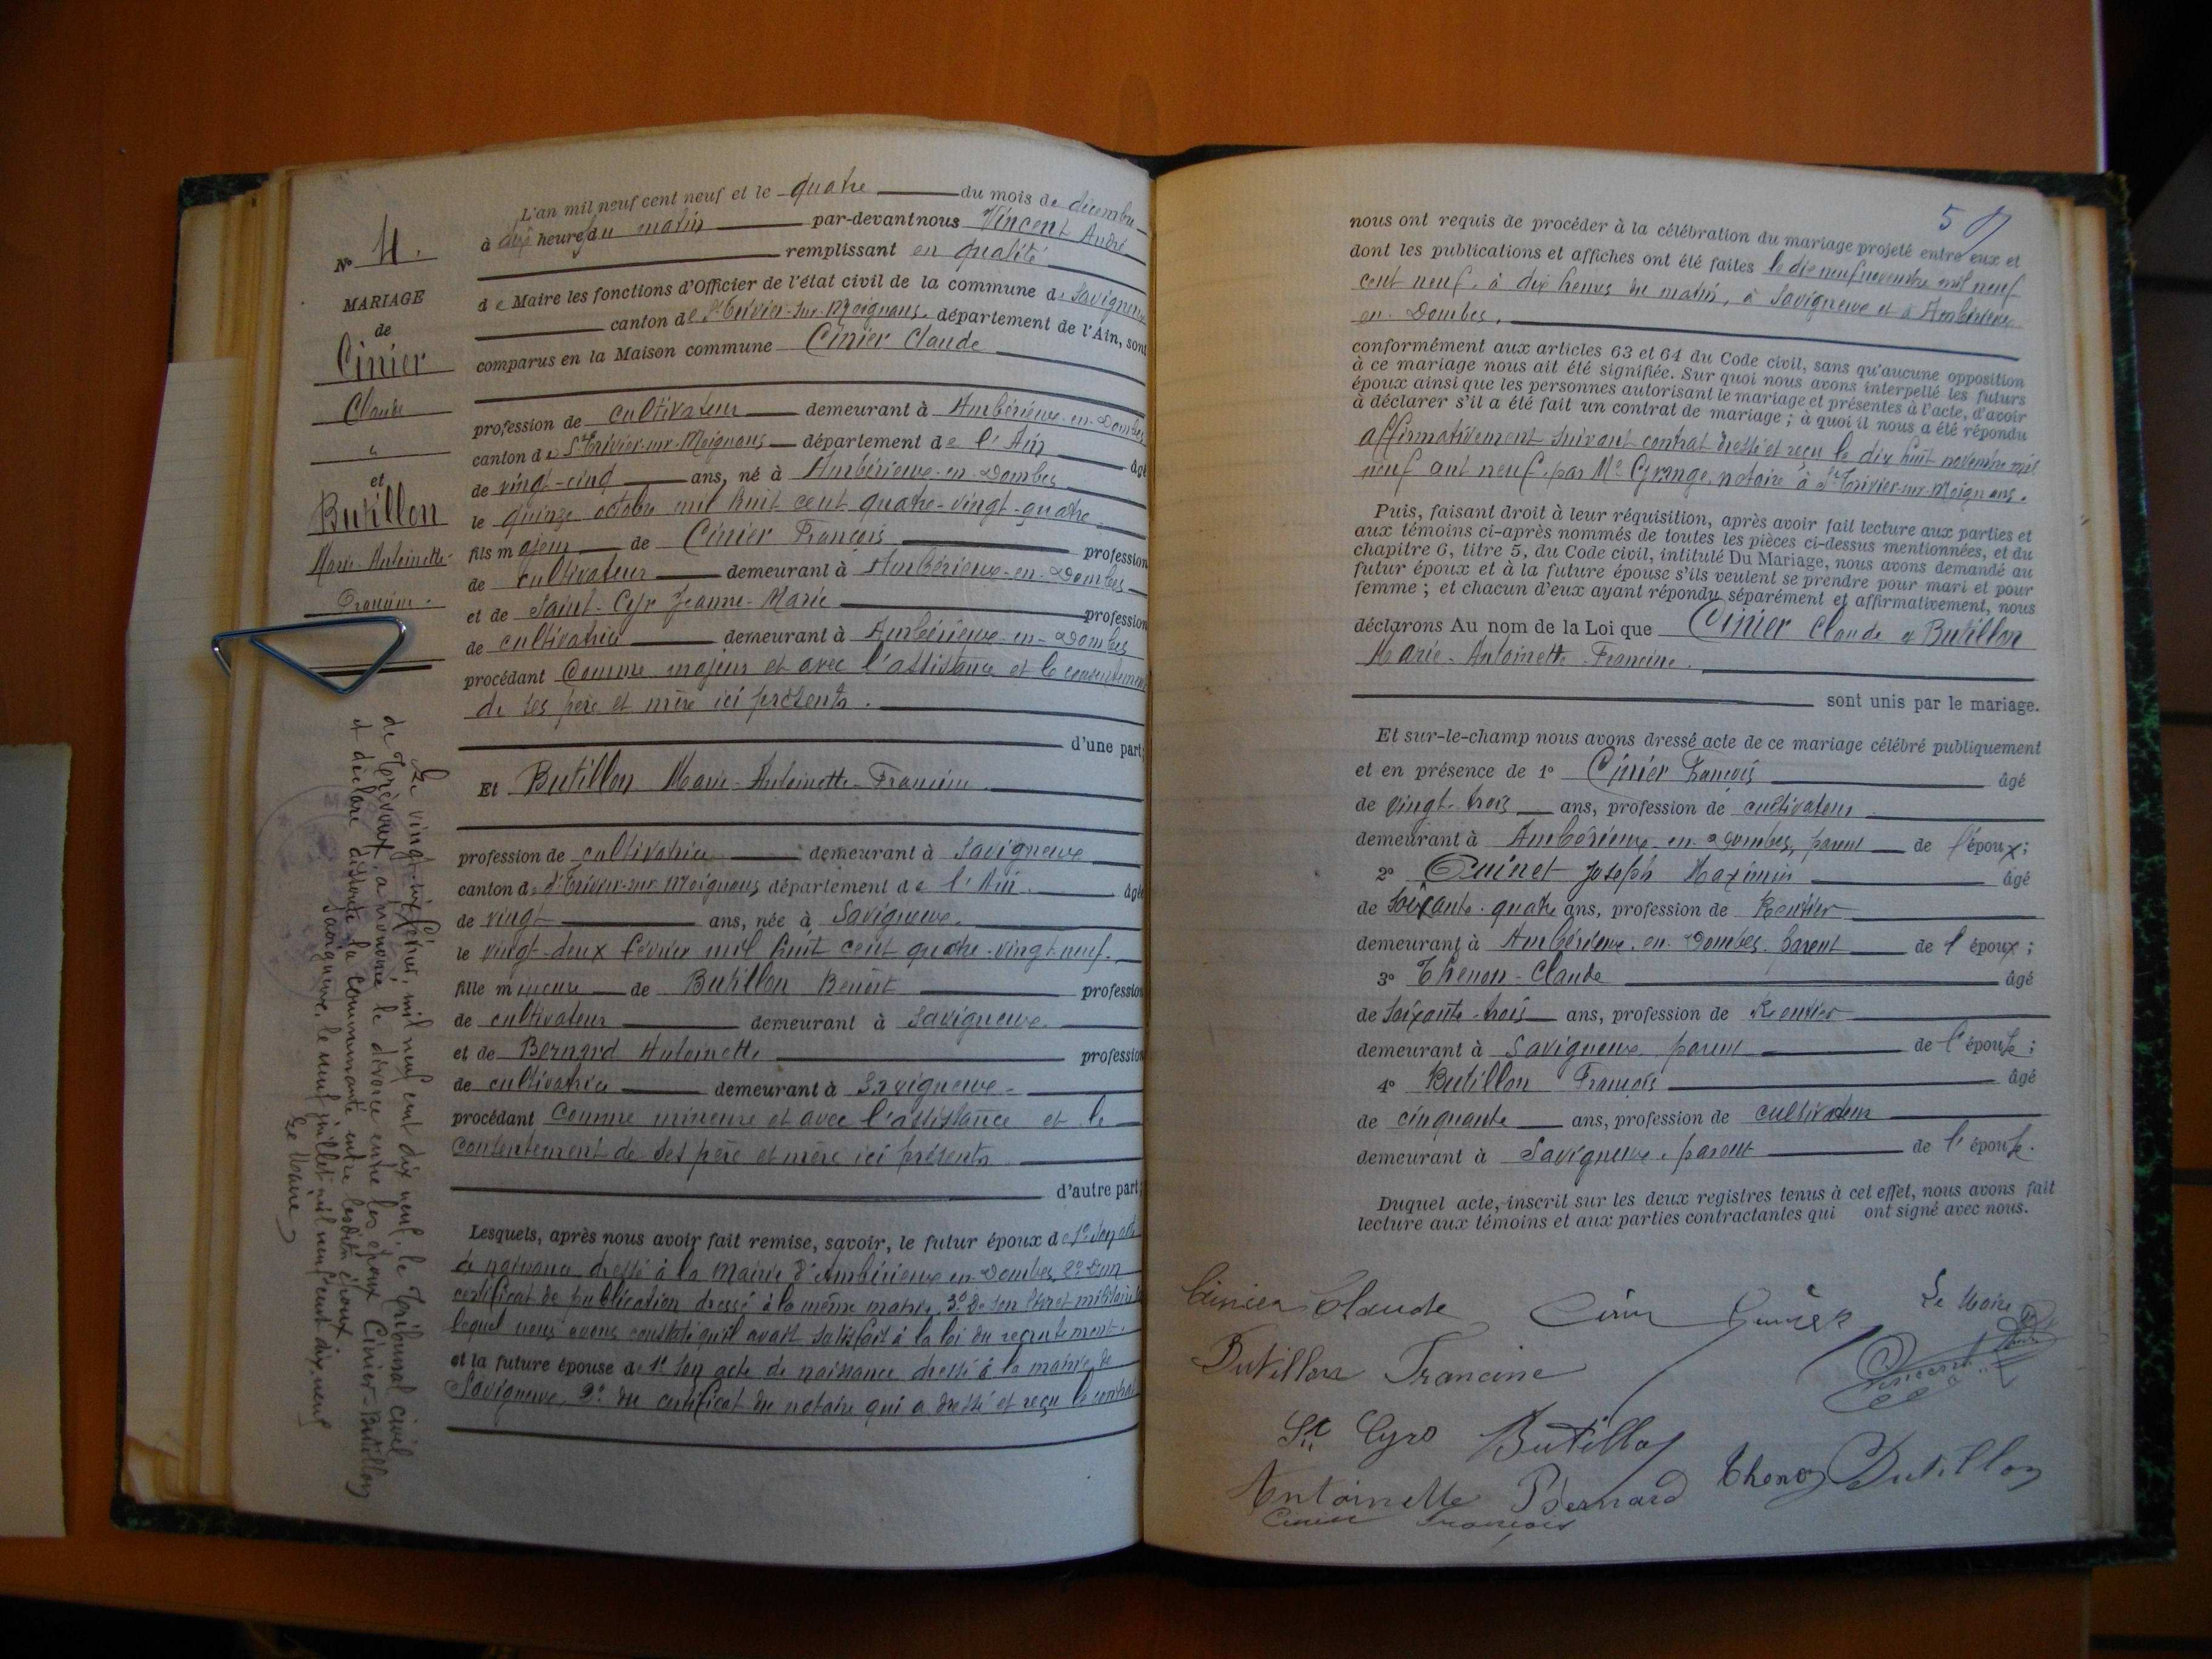 N° 4.
MARIAGE
de
Cinier
Claude
et
Butillon
Marie-Antoinette-
Francine.
L'an mil neuf cent neuf et le quatre du mois de décembre
à dix heures du matin par-devant nous Vincent André
remplissant en qualité
de Maire les fonctions d'Officier de l'état civil de la commune de Savigneux
canton de St Trivier-sur-Moignans, département de l'Ain, sont
comparus en la Maison commune Cinier Claude
profession de cultivateur demeurant à Ambérieux-en-Dombes
canton de St Trivier-sur-Moignans département de l'Ain âgé
de vingt-cinq ans, né à Ambérieux-en-Dombes
le quinze octobre mil huit cent quatre-vingt-quatre
fils majeur de Cinier François profession
de cultivateur demeurant à Ambérieux-en-Dombes
et de Saint-Cyr Jeanne-Marie profession
de cultivatrice demeurant à Ambérieux-en-Dombes
procédant comme majeur et avec l'assistance et le consentement
de ses père et mère ici présents.
d'une part;
Et Butillon Marie-Antoinette-Francine.
profession de cultivatrice demeurant à Savigneux
canton de St Trivier-sur-Moignans département de l'Ain. âgée
de vingt ans, née à Savigneux.
le vingt-deux février mil huit cent quatre-vingt-neuf.
fille mineure de Butillon Benoît profession
de cultivateur demeurant à Savigneux.
et de Bernard Antoinette profession
de cultivatrice demeurant à Savigneux-
procédant comme mineure et avec l'assistance et le
consentement de ses père et mère ici présents
d'autre part;
Lesquels, après nous avoir fait remise, savoir, le futur époux de 1° son acte
de naissance dressé à la Mairie d'Ambérieux-en-Dombes, 2° D'un
certificat de publication dressé à la même mairie, 3° De son livret militaire
lequel nous avons constaté qu'il avait satisfait à la loi du recrutement.
et la future épouse de 1° son acte de naissance dressé à la mairie de
Savigneux, 2° du certificat du notaire qui a dressé et reçu le contrat
Le vingt-six février, mil neuf cent dix neuf, le Tribunal civil
de Trévoux, a prononcé le divorce entre les époux Cinier-Butillon
et déclaré dissoute la communauté entre lesdits époux.
Savigneux, le neuf juillet mil neuf cent dix neuf
Le Maire
5
nous ont requis de procéder à la célébration du mariage projeté entre eux et
dont les publications et affiches ont été faites le dix neuf novembre mil neuf
cent neuf, à dix heures du matin, à Savigneux et à Ambérieux
en Dombes.
conformément aux articles 63 et 64 du Code civil, sans qu'aucune opposition
à ce mariage nous ait été signifiée. Sur quoi nous avons interpellé les futurs
époux ainsi que les personnes autorisant le mariage et présentes à l'acte, d'avoir
à déclarer s'il a été fait un contrat de mariage; à quoi il nous a été répondu
affirmativement suivant contrat dressé et reçu le dix huit novembre mil
neuf cent neuf, par Me Grange, notaire à St Trivier-sur-Moignans.
Puis, faisant droit à leur réquisition, après avoir fait lecture aux parties et
aux témoins ci-après nommés de toutes les pièces ci-dessus mentionnées, et du
chapitre 6, titre 5, du Code civil, intitulé Du Mariage, nous avons demandé au
futur époux et à la future épouse s'ils veulent se prendre pour mari et pour
femme; et chacun d'eux ayant répondu séparément et affirmativement, nous
déclarons Au nom de la Loi que Cinier Claude et Butillon
Marie-Antoinette-Francine.
sont unis par le mariage.
Et sur-le-champ nous avons dressé acte de ce mariage célébré publiquement
et en présence de 1° Cinier François âgé
de vingt-trois ans, profession de cultivateur
demeurant à Ambérieux-en-Dombes, parent de l'époux;
2° Guinet Joseph Maximin âgé
de soixante-quatre ans, profession de Rentier
demeurant à Ambérieux-en-Dombes. parent de l'époux;
3° Thenon-Claude âgé
de soixante-trois ans, profession de Rentier
demeurant à Savigneux parent de l'épouse;
4° Butillon François âgé
de cinquante ans, profession de cultivateur
demeurant à Savigneux, parent de l'épouse.
Duquel acte, inscrit sur les deux registres tenus à cet effet, nous avons fait
lecture aux témoins et aux parties contractantes qui ont signé avec nous.
Cinier Claude
Le Maire
Butillon Francine
Vincent
St Cyr Butillon
Thenon Butillon
Antoinette Bernard
Cinier François